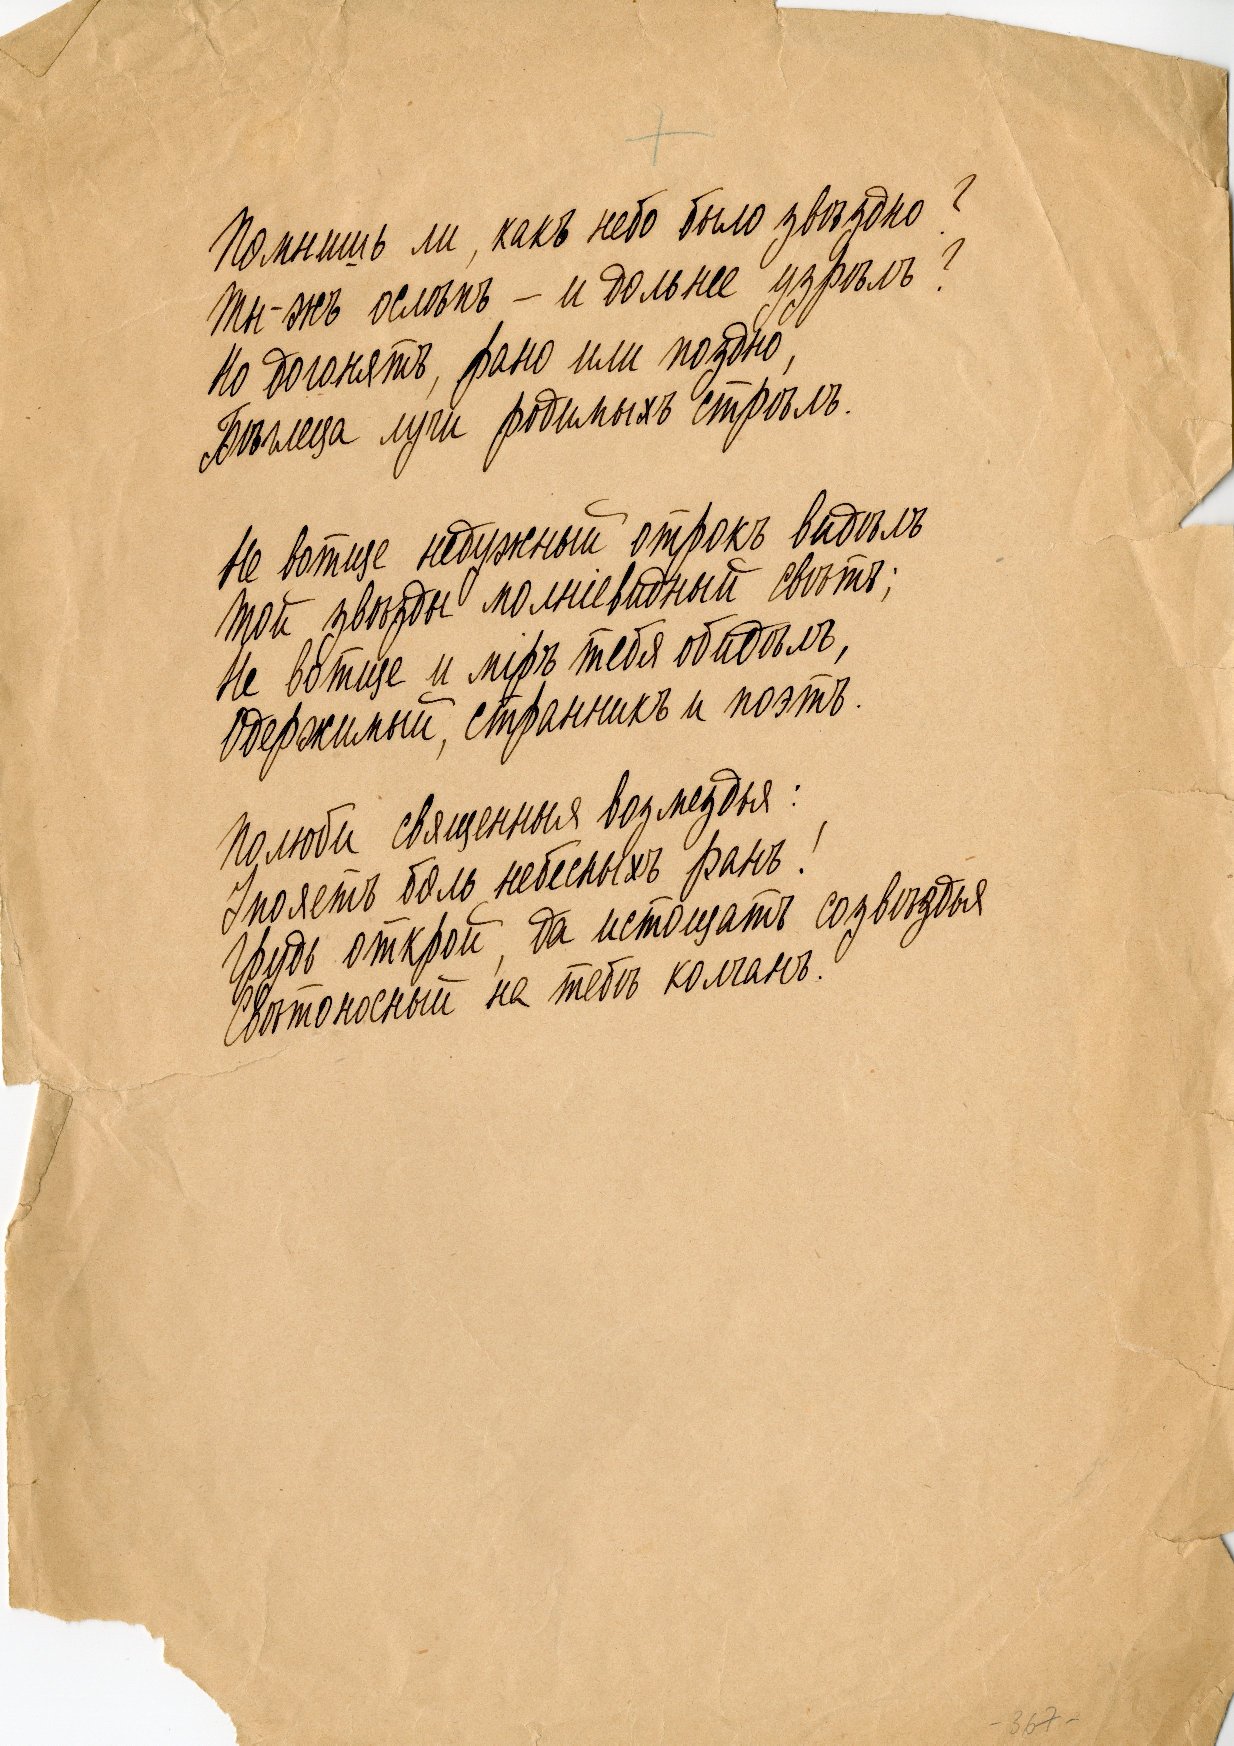 Помнишь ли, какъ небо было звѣздно?
Ты-жъ ослѣпъ – и дольнее узрѣлъ?
Но догонятъ, рано или поздно,
Бѣглеца лучи родимыхъ стрѣлъ.
Не вотще недужный отрокъ видѣлъ
Той звѣзды молніевидный свѣтъ;
Не вотще и міръ тебя обидѣлъ,
Одержимый, странникъ и поэтъ.
Полюби священныя возмездья:
Упоетъ боль небесныхъ ранъ!
Грудь открой, да истощатъ созвѣздья
Свѣтоносный на тебѣ колчанъ.
-367-